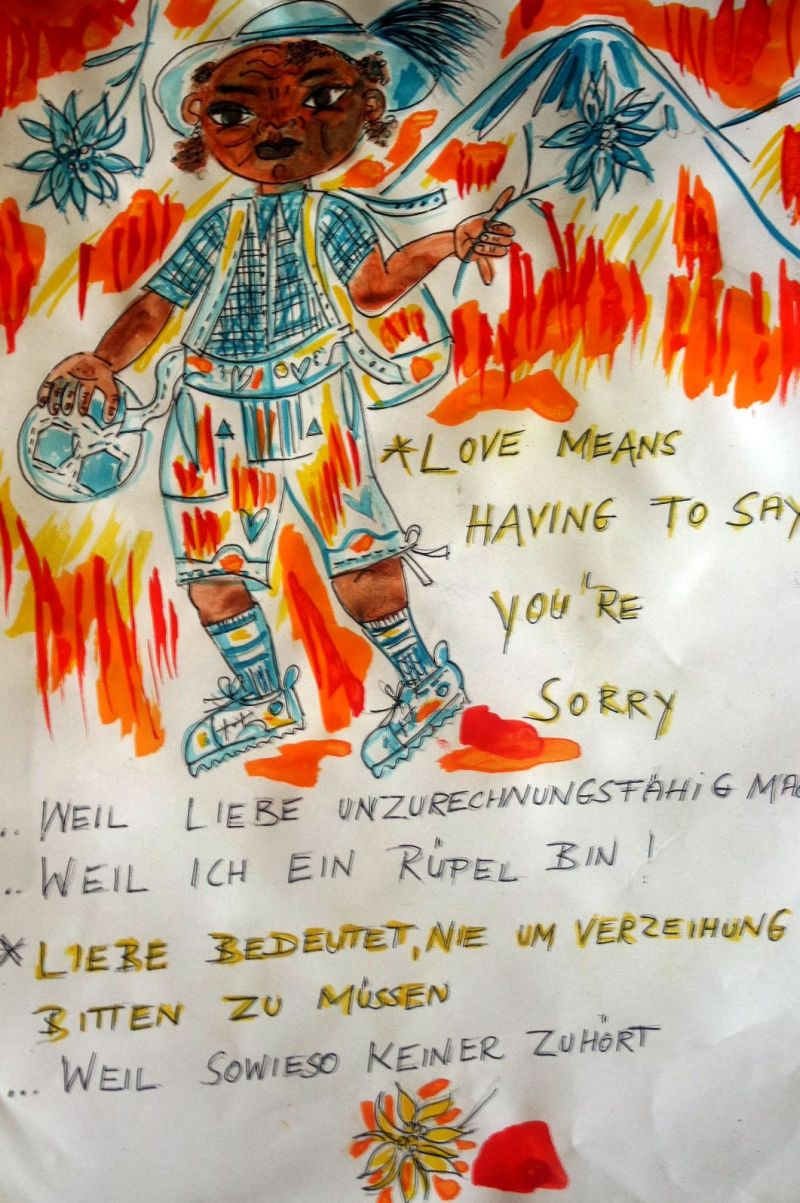 *LOVE MEANS
HAVING TO SAY
YOU'RE
SORRY
.. WEIL LIEBE UNZURECHNUNGSFÄHIG
.. WEIL ICH EIN RÜPEL BIN !
* LIEBE BEDEUTET, NIE UM VERZEIHUNG
BITTEN ZU MÜSSEN
... WEIL SOWIESO KEINER ZUHÖRT